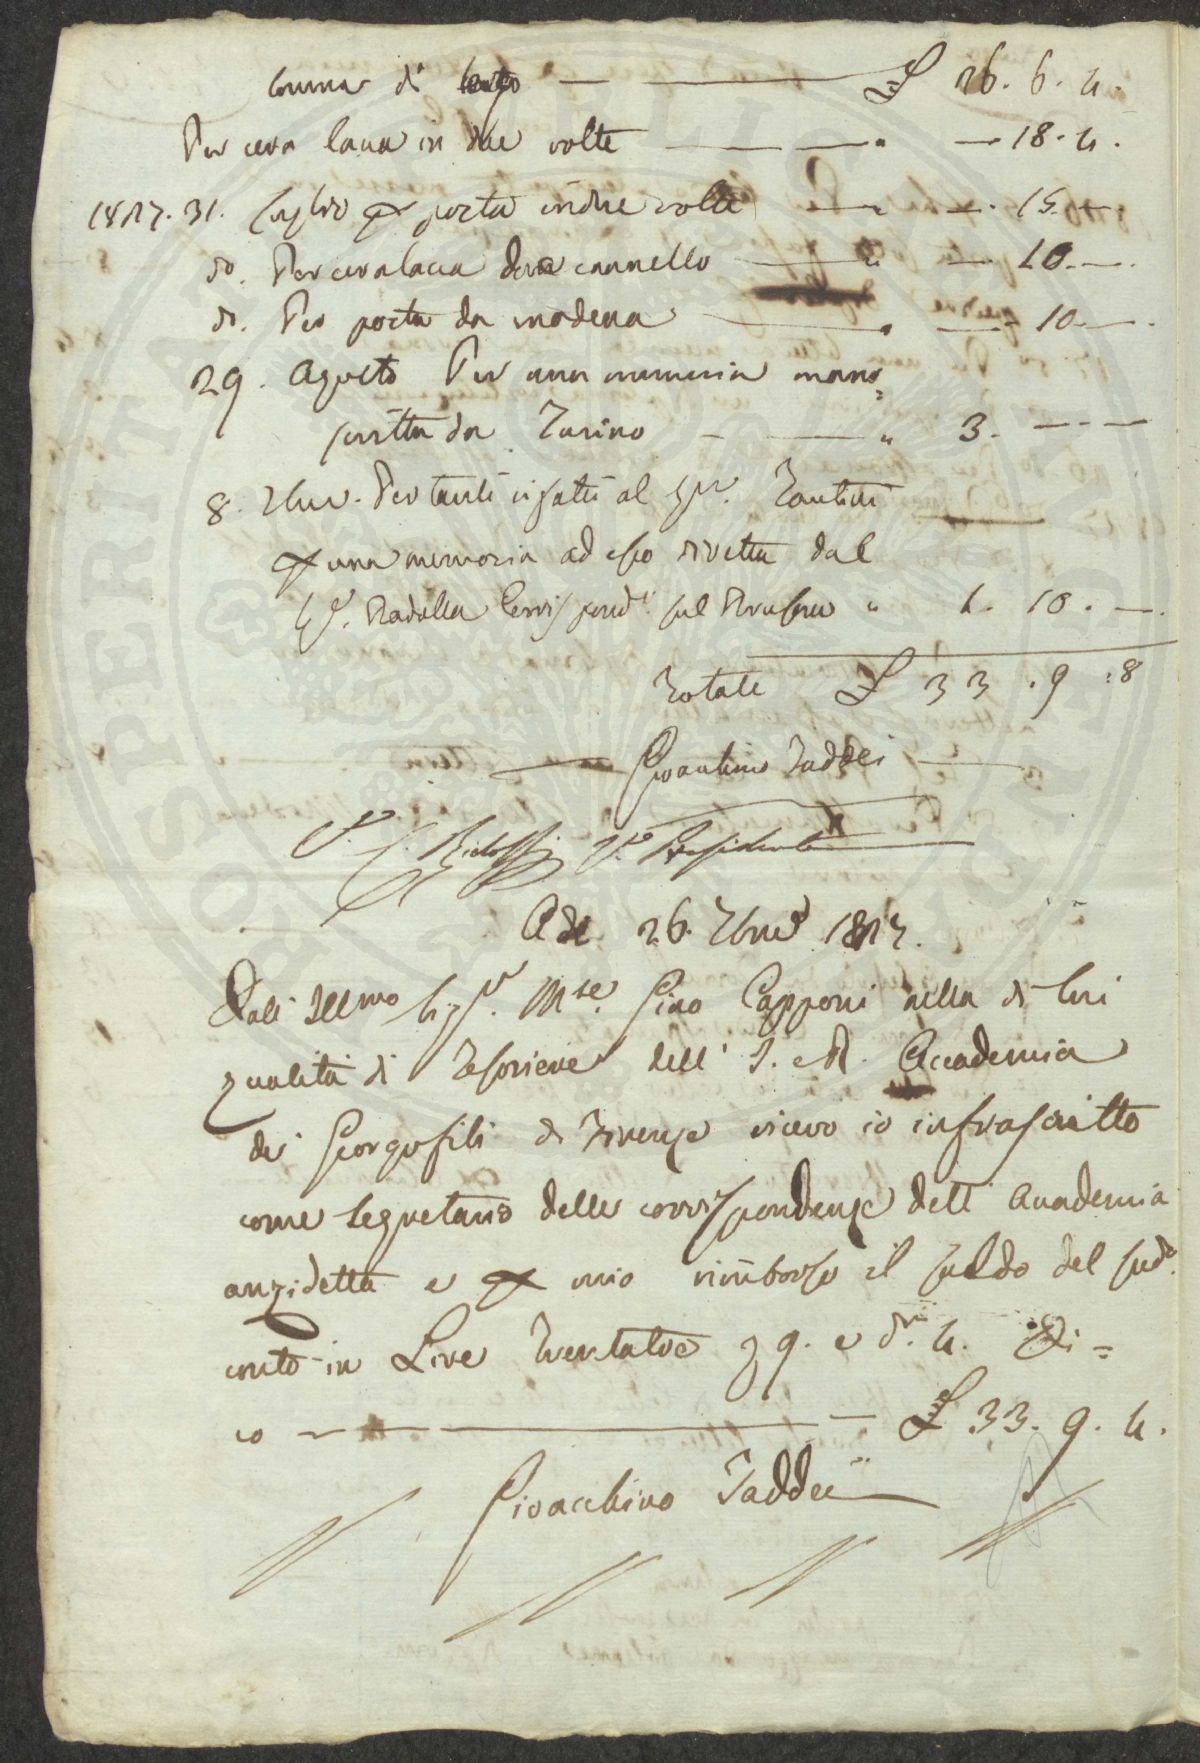 somma di tergo — £ 26. 6. 4.
Per cera lacca in due volte — " — 18. 4.
1817. 31. Luglio p porta in due volte — " — 15. —
do. Per ceralacca due cannello — " — 10. —
do. Per porta da modena — " — 10. —
29. Agosto Per una memoria mano=
scritta da Torino — " 3. — —
8. 7bre. Per tanti rifatti al Sigr.
p una memoria ad esso diretta dal
Sr. Radolla Corrispond.e sul " 1. 10. —
Totale £ 33. 9. 8
Gioachino Taddei
C. Ridolfi V. Presidente
Adi 26. 7bre 1817.
Dall' Illmo Sigr. Mse. Gino Capponi nella di lui
qualità di Tesoriere dell' I. e R. Accademia
dei Georgofili di Firenze ricevo io infrascritto
come segretario delle corrispondenze dell' Accademia
anzidetta e p mio rimborso il saldo del sudo.
conto in Lire Trentatre 9. e dri. 4. Di=
co — £ 33. 9. 4.
Gioacchino Taddei
PROSPERITATI PUBLICAE AUGENDAE